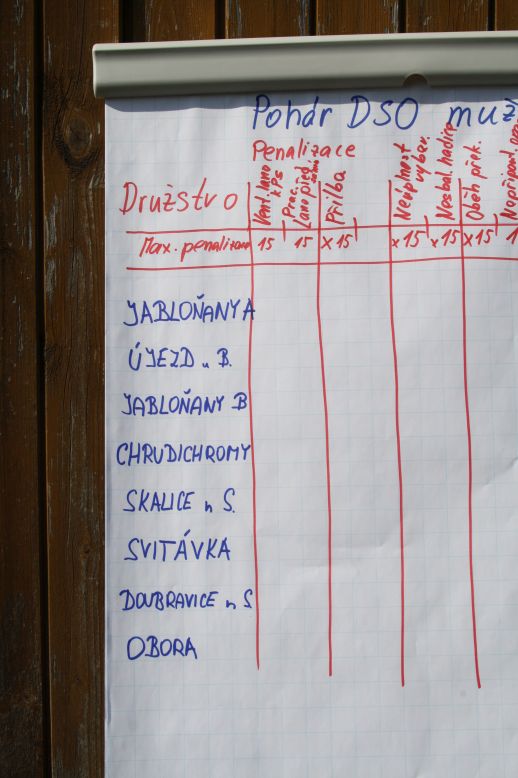 Pohár DSO muž
Penalizace
Družstvo
Vent. lano
k PS
Prac.
Lano před
Přilba
Neúplnost
vybav.
Nesbal. hadice
Oběh přek.
Max. penalizace 15 15 x 15 x 15 x 15 x 15 1
JABLOŇANY A
ÚJEZD u B.
JABLOŇANY B
CHRUDICHROMY
SKALICE n S.
SVITÁVKA
DOUBRAVICE n S.
OBORA